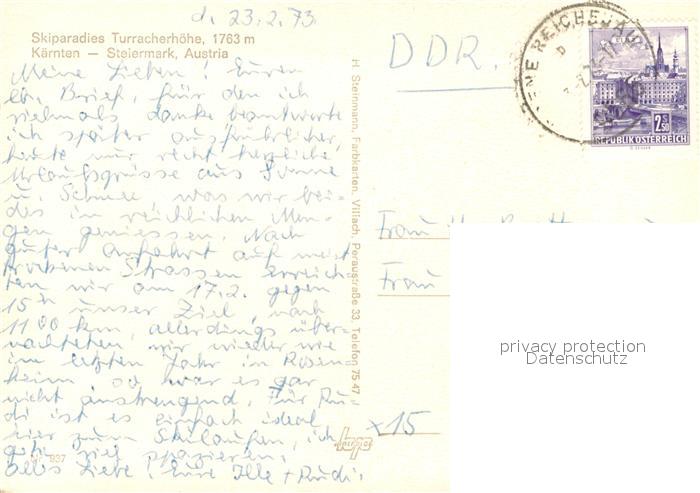 d. 23.2.73
Skiparadies Turracherhöhe, 1763 m
Kärnten — Steiermark, Austria
Meine Lieben! Euren
lb. Brief, für den ich
vielmals danke beantworte
ich später ausführlicher,
heute nur recht herzliche
Urlaubsgrüsse aus Sonne
u. Schnee, was wir bei-
des in reichlichen Men-
gen geniessen. Nach
guter Anfahrt auf meist
trockenen Strassen erreich-
ten wir am 17.2. gegen
15 h unser Ziel, nach
1100 km, allerdings über-
nachteten wir wieder wie
im letzten Jahr in Rosen-
heim, so war es gar
nicht anstrengend. Für Ru-
di ist es einfach ideal
hier zum Skilaufen, ich
gehe viel spazieren.
Alles Liebe! Eure Ille + Rudi.
937
H. Steinmann, Farbkarten, Villach, Peraustraße 33, Telefon 75 47
DDR.
REICHENAU
2S50
REPUBLIK ÖSTERREICH
Frau
Frau
x15
privacy protection
Datenschutz